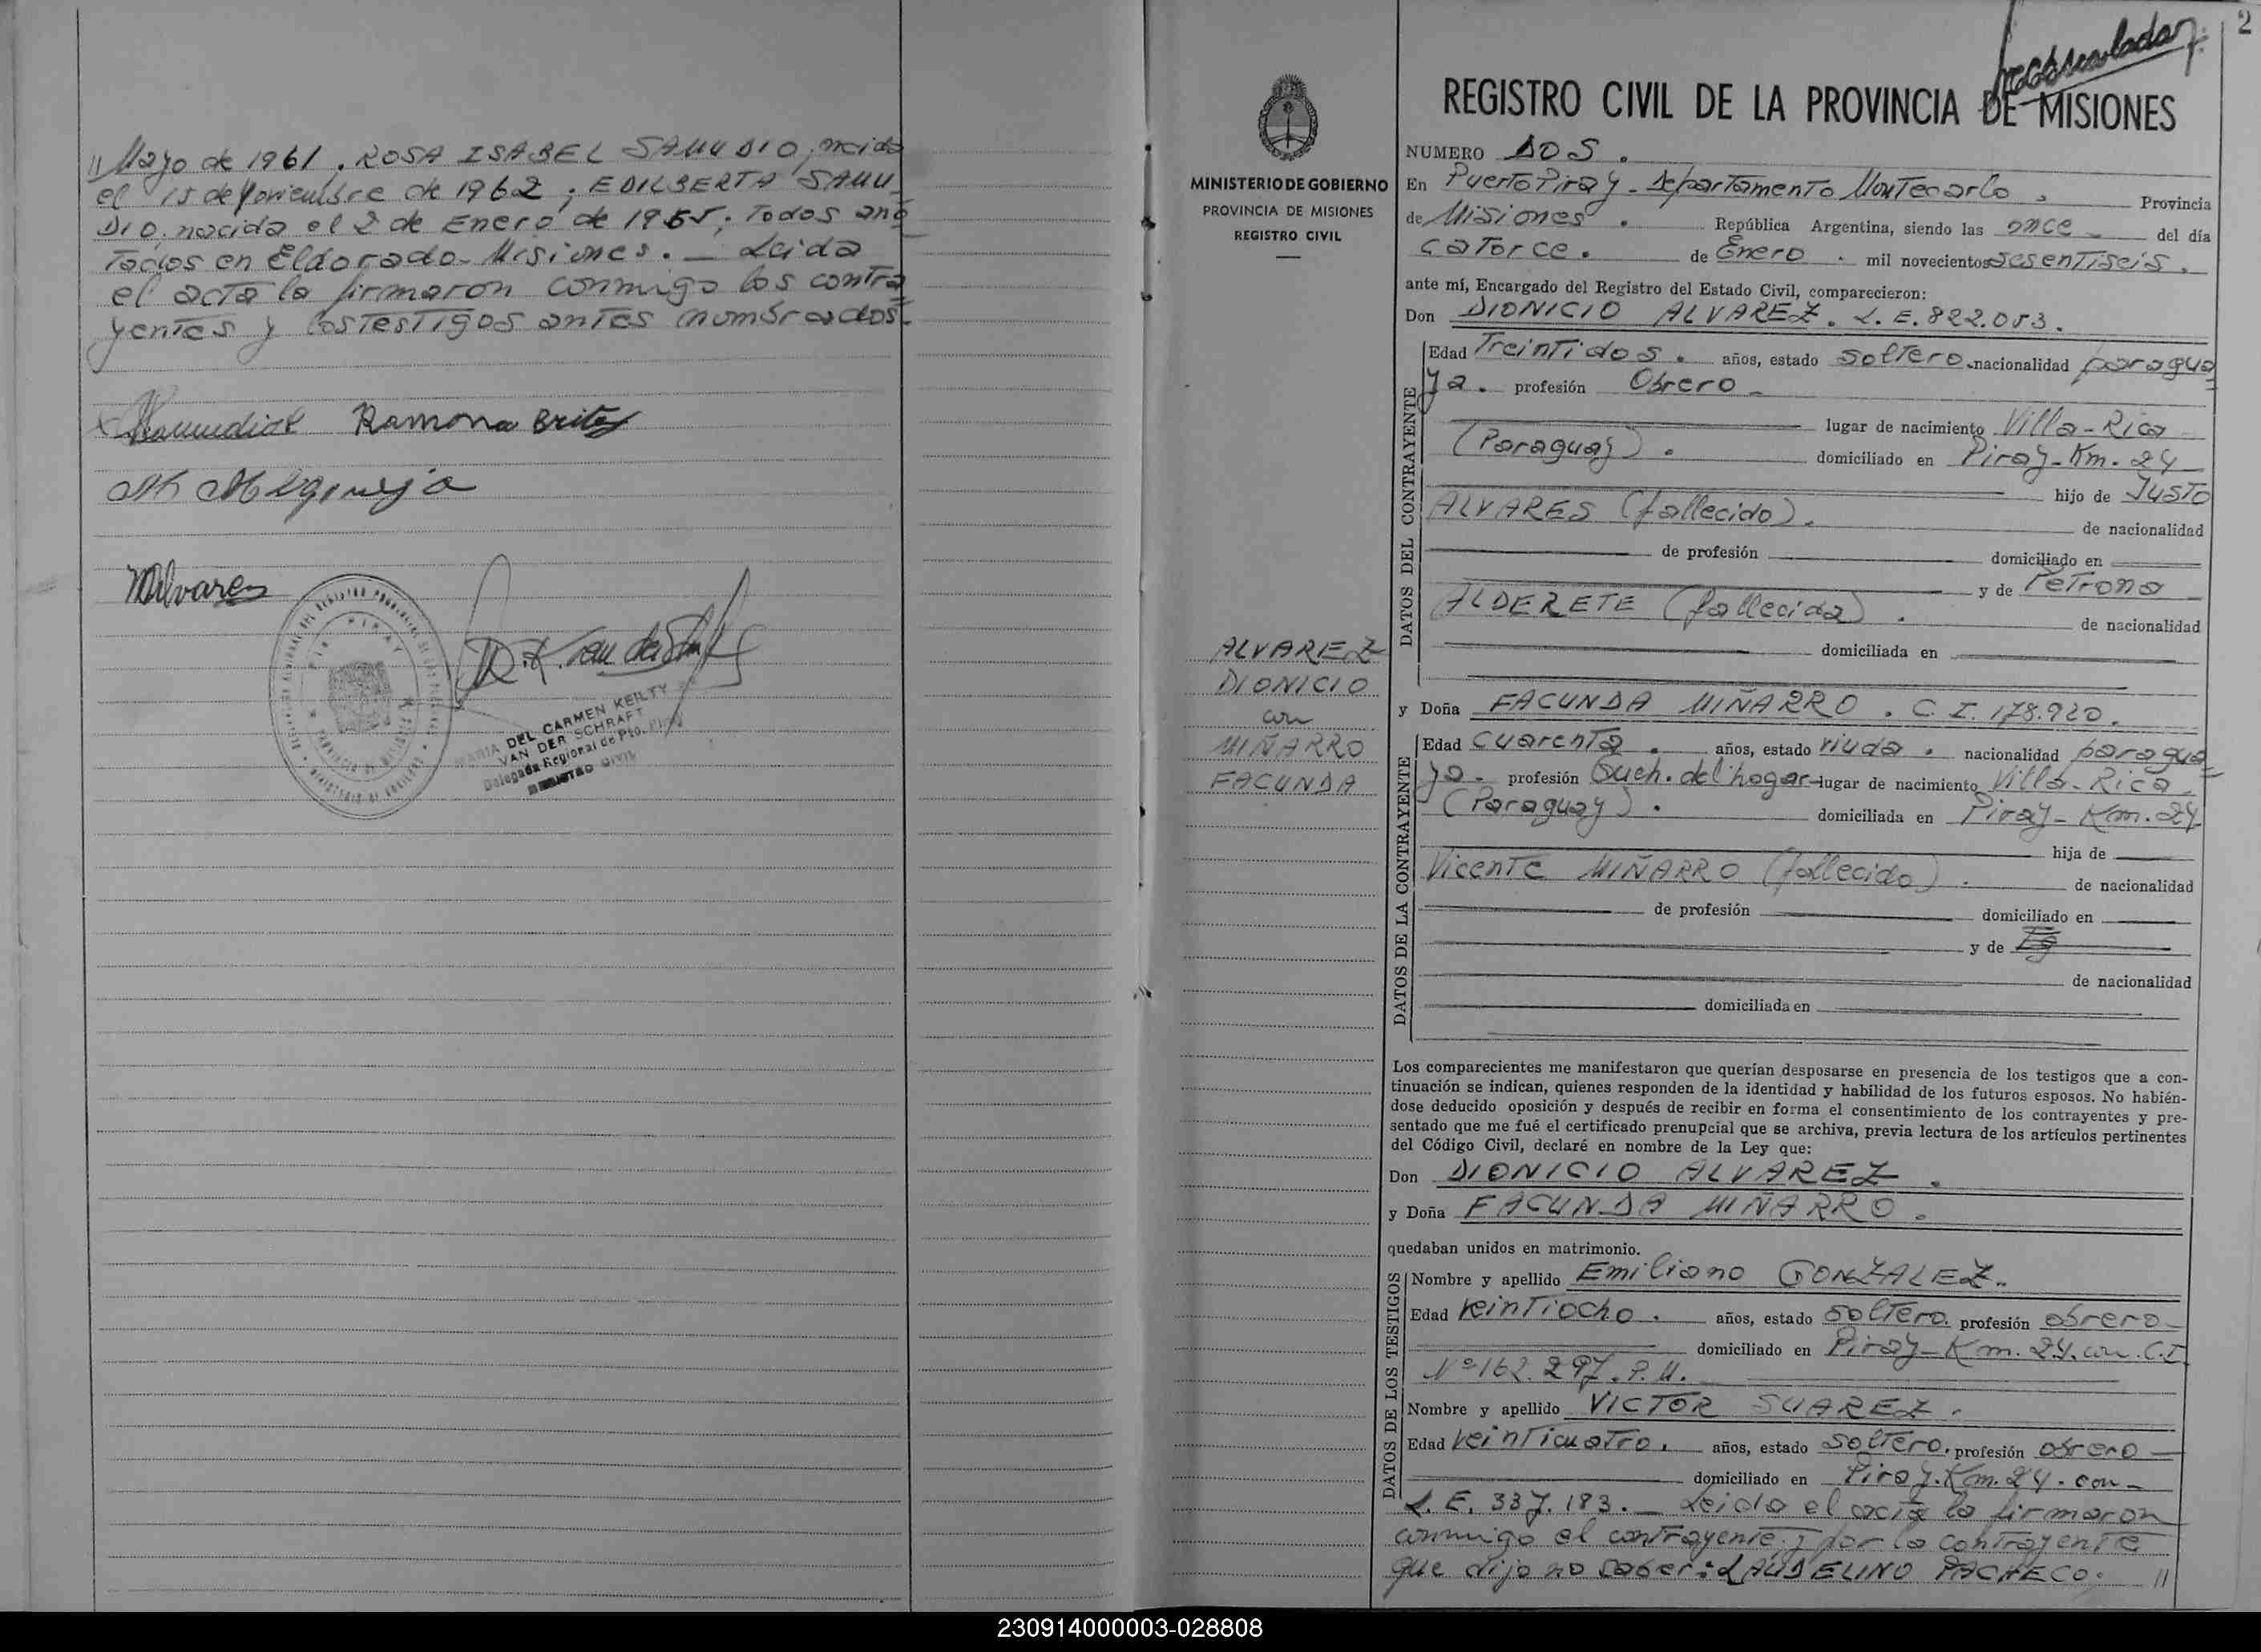 // Mayo de 1961, ROSA ISABEL SAMUDIO, nacida
el 15 de Noviembre de 1962; EDILBERTA SAMU_
DIO, nacida el 2 de Enero de 1965; Todos ano_
Tados en Eldorado-Misiones._ Leida
el acta la firmaron conmigo los contra
yentes y los Testigos antes nombrados.
Ramona Britez
MAlvarez
MARIA DEL CARMEN KEILTY
VAN DER SCHRAFT
Delegada Regional de Pto. Piray
REGISTRO CIVIL
2
MINISTERIO DE GOBIERNO
PROVINCIA DE MISIONES
REGISTRO CIVIL
ALVAREZ
DIONICIO
con
MIÑARRO
FACUNDA
REGISTRO CIVIL DE LA PROVINCIA DE MISIONES
NUMERO DOS.
En Puerto Piray-Departamento Montecarlo, Provincia
de Misiones. República Argentina, siendo las once del día
caTorce. de Enero. mil novecientos sesentiseis.
ante mí, Encargado del Registro del Estado Civil, comparecieron:
Don DIONICIO ALVAREZ. L.E. 822.053.
DATOS DEL CONTRAYENTE
Edad TreinTidos. años, estado solTero. nacionalidad paragua
ya. profesión Obrero
lugar de nacimiento Villa-Rica
(Paraguay). domiciliado en Piray-Km. 24
hijo de JusTo
ALVARES (fallecido). de nacionalidad
de profesión domiciliado en
y de PeTrona
ALDERETE (fallecida). de nacionalidad
domiciliada en
y Doña FACUNDA MIÑARRO. C.I. 178.920.
DATOS DE LA CONTRAYENTE
Edad cuarenTa. años, estado viuda. nacionalidad paragua
ya. profesión Queh. del hogar lugar de nacimiento Villa-Rica
(Paraguay). domiciliada en Piray-Km. 24
hija de
VicenTe MIÑARRO (fallecido). de nacionalidad
de profesión domiciliado en
y de
de nacionalidad
domiciliada en
Los comparecientes me manifestaron que querían desposarse en presencia de los testigos que a con-
tinuación se indican, quienes responden de la identidad y habilidad de los futuros esposos. No habién-
dose deducido oposición y después de recibir en forma el consentimiento de los contrayentes y pre-
sentado que me fué el certificado prenupcial que se archiva, previa lectura de los artículos pertinentes
del Código Civil, declaré en nombre de la Ley que:
Don DIONICIO ALVAREZ.
y Doña FACUNDA MIÑARRO.
quedaban unidos en matrimonio.
DATOS DE LOS TESTIGOS
Nombre y apellido Emiliano GONZALEZ.
Edad veinTiocho. años, estado solTero. profesión obrero
domiciliado en Piray-Km. 24. con C.I.
Nº 162.297. P.M.
Nombre y apellido VICTOR SUAREZ.
Edad veinTicuaTro. años, estado solTero. profesión obrero
domiciliado en Piray. Km. 24. con-
L.E. 337.183._ Leida el acta la firmaron
conmigo el contrayente y por la contrayente
que dijo no saber: LAUDELINO PACHECO; //
230914000003-028808